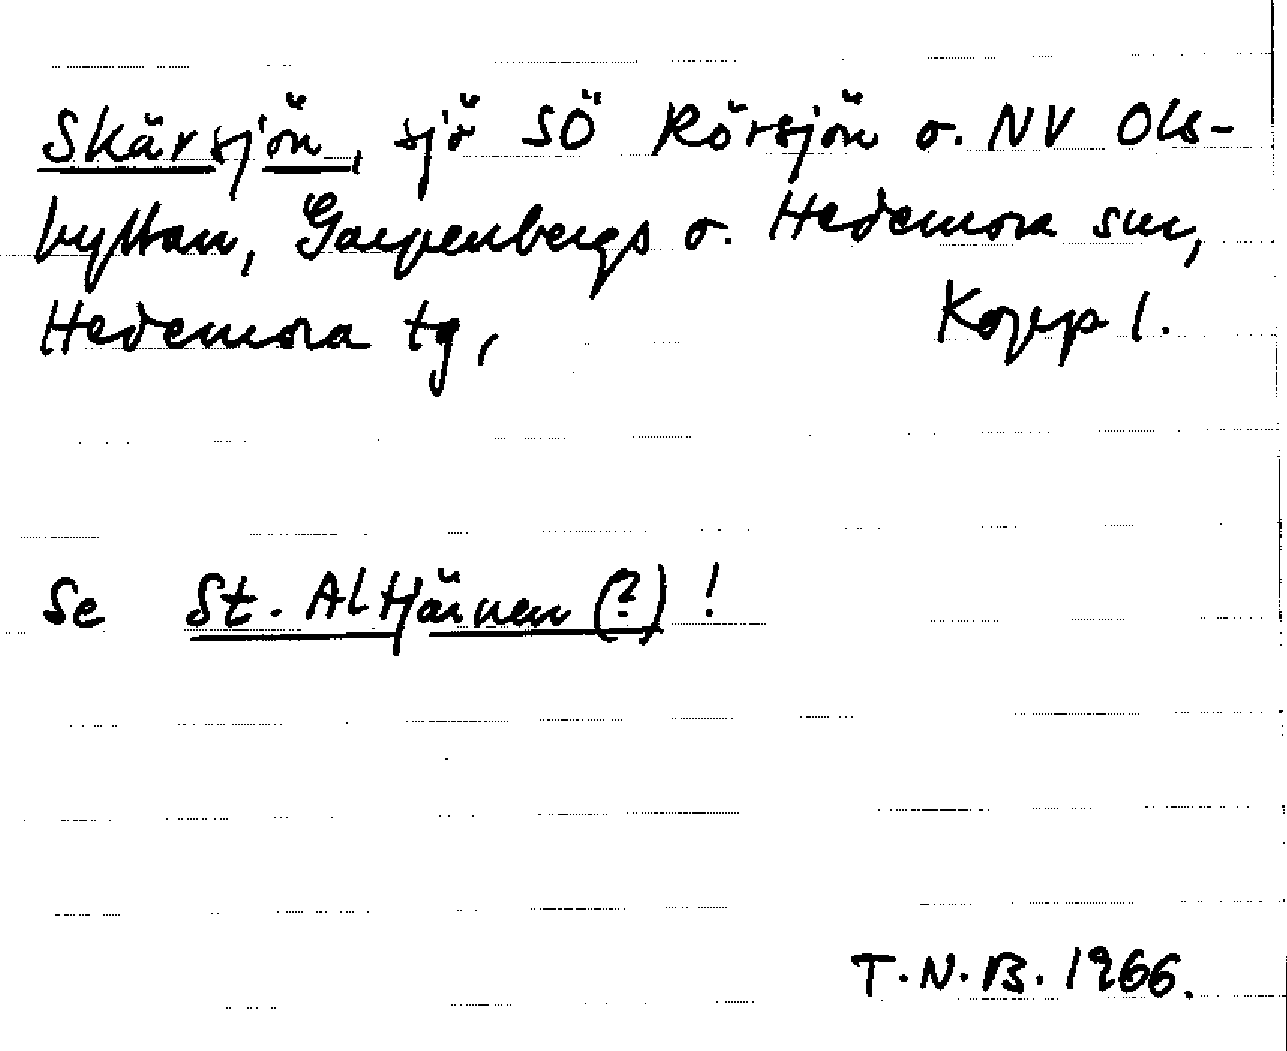 Skärsjön, sjö SÖ Rörsjön o. NV Ols-
byttan, Garpenbergs o. Hedemora snr,
Hedemora tg, Kopp l.
Se St. Altjärnen (?) !
T.N.B. 1966.